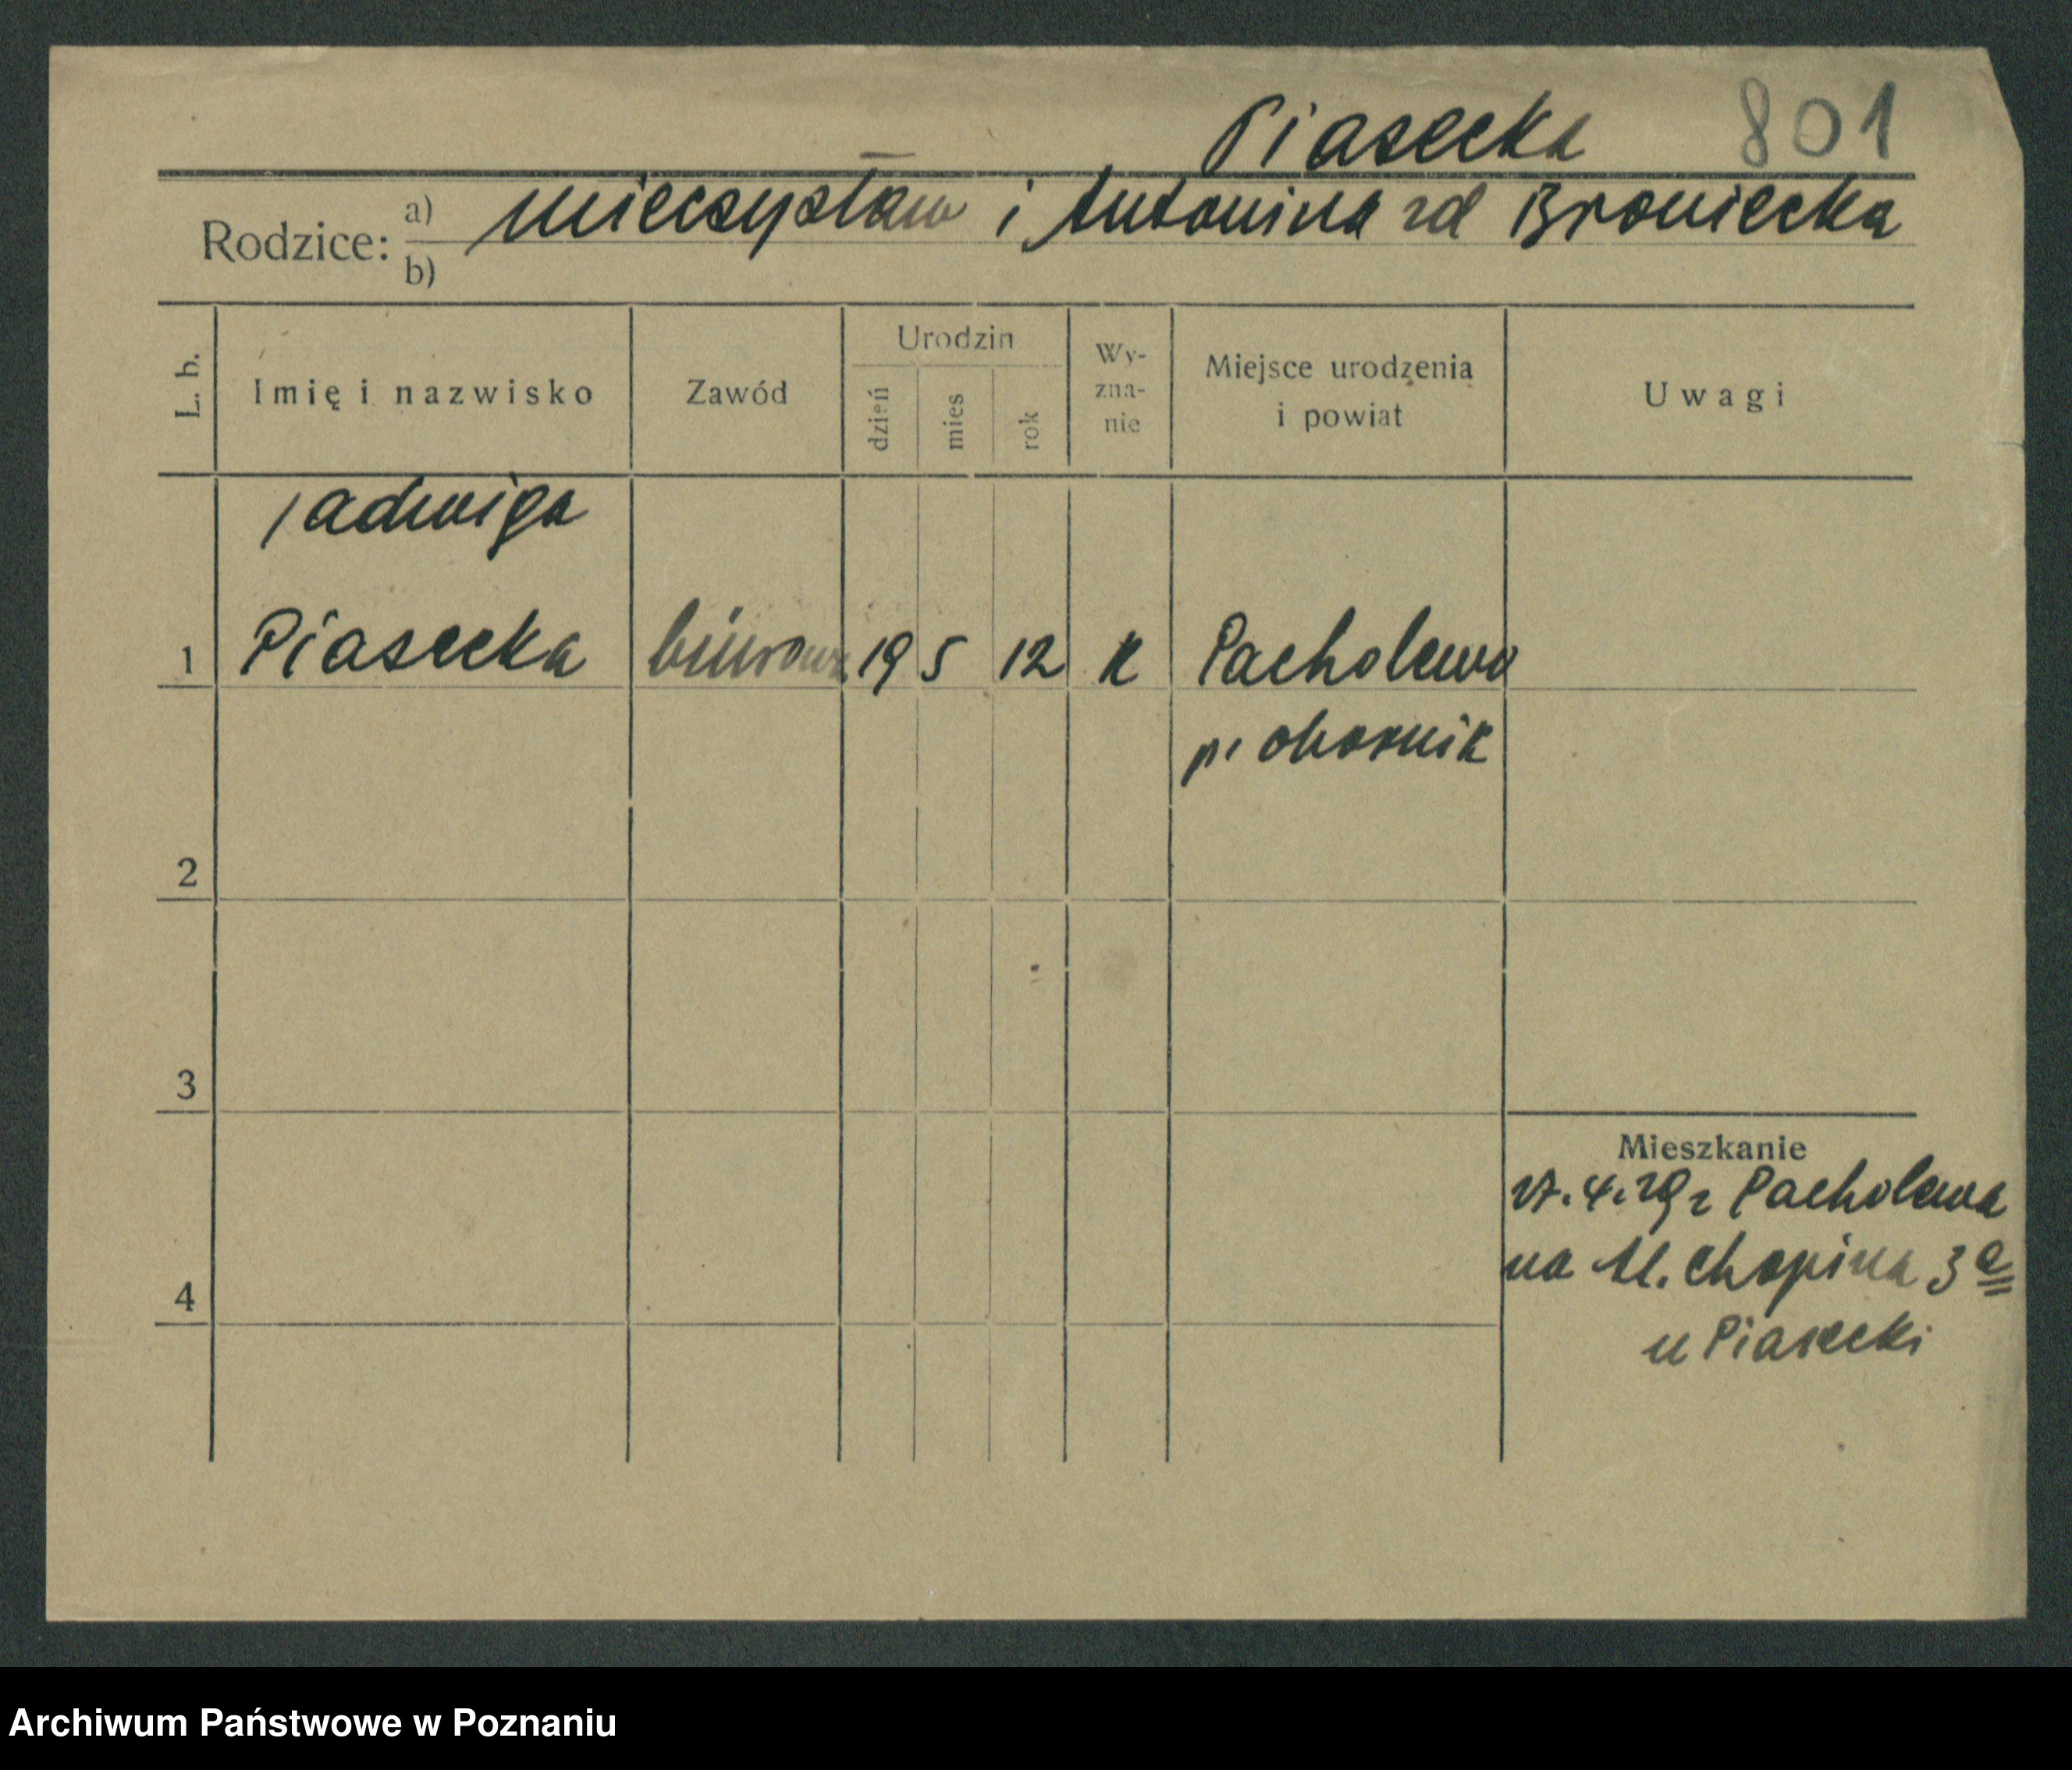 Piasecka 801
Rodzice: a) Mieczysław i Antonina zd Broniecka
b)
L. b. Imię i nazwisko Zawód Urodzin dzień mies rok Wy-zna-nie Miejsce urodzenia i powiat Uwagi
Jadwiga
1 Piasecka biurowa 19 5 12 K Pacholewo
p. obornik
2
3
Mieszkanie
4.29 z Pacholewa
na Ul. Chopina 3a
4
u Piasecki
Archiwum Państwowe w Poznaniu